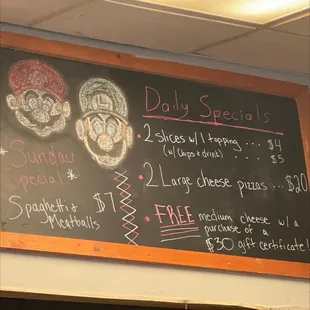 Sunday
Special
Spaghetti &
Meatballs $7
Daily Specials
2 slices w/ 1 topping .... $4
(w/ chips & drink) .... $5
2 Large cheese pizzas ... $20
FREE medium cheese w/ a
purchase of a
$30 gift certificate!